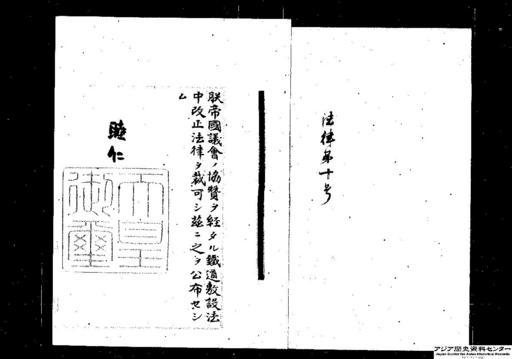 法律第十号
朕帝國議會ノ協賛ヲ經タル鐵道敷設法
中改正法律ヲ裁可シ茲ニ之ヲ公布セシ
ム
睦仁
天皇
御璽
アジア歴史資料センター
Japan Center for Asian Historical Records